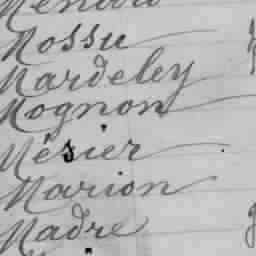 Mossu
Mardeley
Mognon
Mésier
Marion
Madre